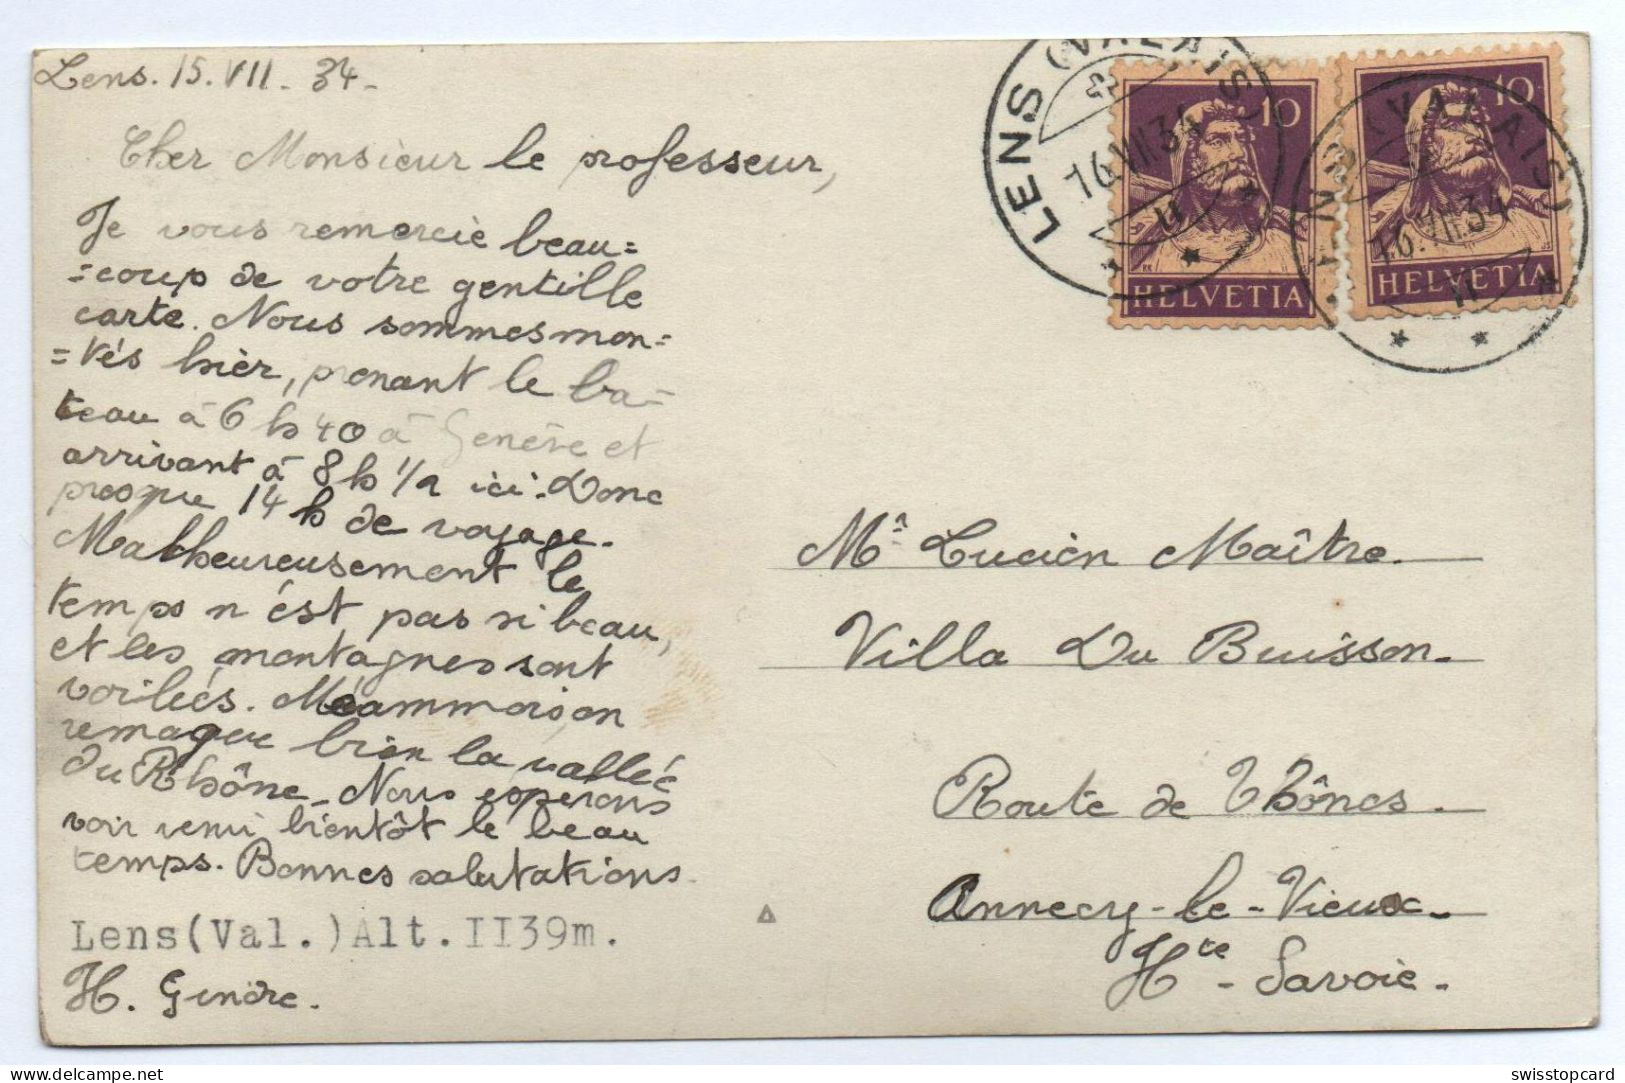 Lens. 15. VII. 34.
Cher Monsieur le professeur,
Je vous remercie beau=
=coup de votre gentille
carte. Nous sommes mon=
=tés hièr, prenant le ba=
teau à 6 h 40 à Genève et
arrivant à 8 h 1/2 ici. Donc
presque 14 h de voyage.
Malheureusement le
temps n'ést pas si beau,
et les montagnes sont
voilées. Méammoison
remaque bien la vallée
du Rhône. Nous esperons
voir venir bientôt le beau
temps. Bonnes salutations.
Lens(Val.)Alt.II39m.
H. Gindre.
LENS (VALAIS)
16.VII.34
11
10
HELVETIA
LENS (VALAIS)
16.VII.34
11
10
HELVETIA
Mr Lucien Maître.
Villa Du Buisson.
Route de Thônes.
Annecy-le-Vieux.
Hte - Savoie.
swisstopcard